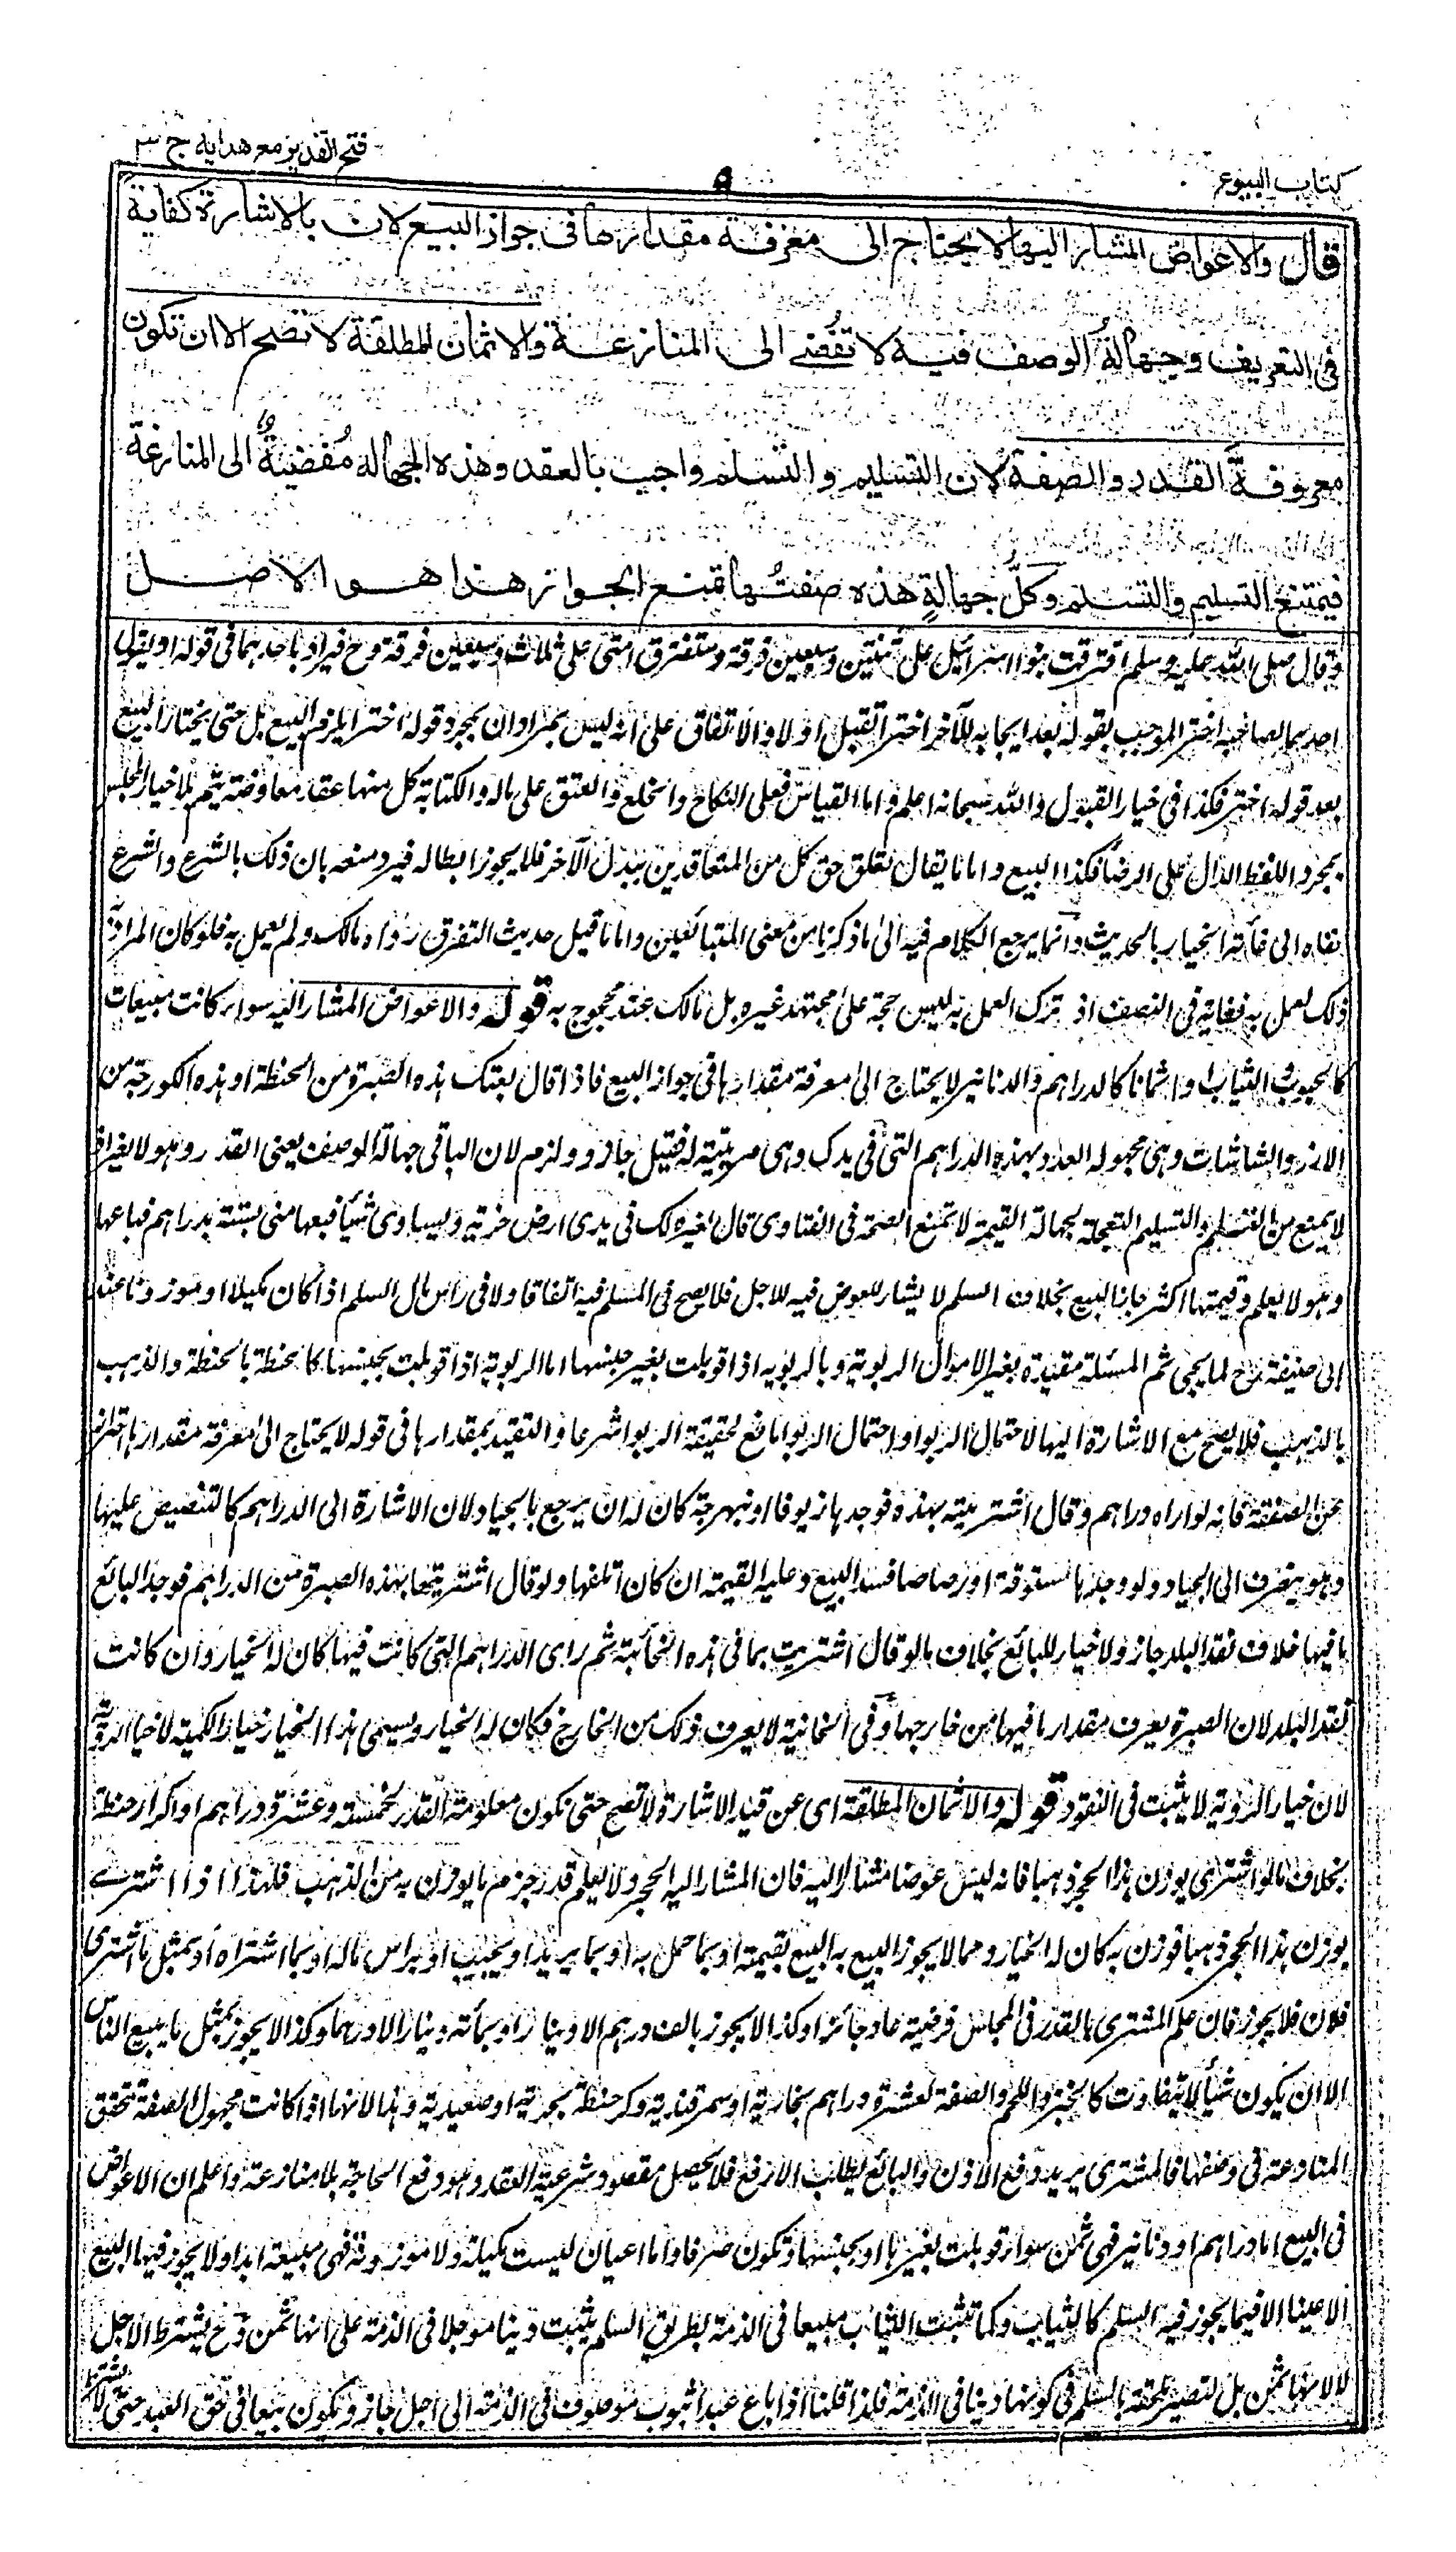 كتاب البيوع
فتح القدير مع هدايه ج ٣
قال والاعواض المشار اليها لا يحتاج الى معرفة مقدارها فى جواز البيع لان بالاشارة كفاية
فى التعريف وجهالة الوصف فيه لا تفضے الى المنازعة والاثمان المطلقة لا تصح الا ان تكون
معروفة القدر والصفة لان التسليم والتسلم واجب بالعقد وهذه الجهالة مفضية الى المنازعة
فيمتنع التسليم والتسلم وكل جهالة هذه صفتها تمنع الجواز هذا هو الاصل
وقال صلى الله عليه وسلم افترقت بنوا اسرائيل على ثنتين وسبعين فرقة وستفترق امتى على ثلاث وسبعين فرقة وح فيراد باحدهما فى قوله او يقول
احدهما لصاحبه اختر الموجب بقوله بعد ايجابه للآخر اختر اتقبل او لا والاتفاق على انه ليس بمراد ان بمجرد قوله اختر يلزم البيع بل حتى يختار البيع
بعد قوله اختر فكذا فى خيار القبول والله سبحانه اعلم واما القياس فعلى النكاح والخلع والعتق على مال والكتابة كل منها عقد معاوضة يتم بلا خيار المجلس
بمجرد اللفظ الدال على الرضا فكذا البيع واما ما يقال تعلق حق كل من المتعاقدين ببدل الآخر فلا يجوز ابطاله فيرد منعه بان ذلك بالشرع والشرع
نفاه الى غاية الخيار بالحديث وانما يرجع الكلام فيه الى ما ذكرنا من معنى المتبائعين واما ما قيل حديث التفرق رواه مالك ولم يعمل به فلو كان المراد به
ذلك لعمل به فغاية فى الضعف اذ ترك العمل به ليس حجة على مجتهد غيره بل مالك عنده محجوج به قوله والاعواض المشار اليه سواء كانت مبيعات
كالحبوب والثياب او اثمانا كالدراهم والدنانير لا يحتاج الى معرفة مقدارها فى جواز البيع فاذا قال بعتك هذه الصبرة من الحنطة او هذه الكورجة من
الارز والشاشات وهى مجهولة العدد بهذه الدراهم التى فى يدك وهى مرئية له فقبل جاز ولزم لان الباقى جهالة الوصف يعنى القدر وهو لا يضر اذ
لا يمنع من التسلم والتسليم لتعجله كجهالة القيمة لا تمنع الصحة فى الفتاوى قال لغيره لك فى يدى ارض خربة لا يساوى شيئا فبعها منى بستة دراهم فباعها
وهو لا يعلم وقيمتها اكثر جاز البيع بخلاف السلم لا يشار للعوض فيه للاجل فلا يصح فى المسلم فيه اتفاقا ولا فى راس مال السلم اذا كان مكيلا او موزونا عند
ابى حنيفة رح لما يجئ ثم المسئلة مقيدة بغير الاموال الربوية وبالربويه اذا قوبلت بغير جنسها اما الربوية اذا قوبلت بجنسها كالحنطة بالحنطة والذهب
بالذهب فلا يصح مع الاشارة اليها لاحتمال الربوا واحتمال الربوا مانع لحقيقة الربوا شرعا والتقيد بمقدارها فى قوله لا يحتاج الى معرفة مقدارها احتراز
عن الصفة فانه لو اراه دراهم وقال اشتريته بهذه فوجدها زيوفا او نبهرجة كان له ان يرجع بالجياد لان الاشارة الى الدراهم كالتنصيص عليها
وهو ينصرف الى الجياد ولو وجدها ستوقة او رصاصا فسد البيع وعليه القيمة ان كان اتلفها ولو قال اشتريتها بهذه الصبرة من الدراهم فوجد البائع
ما فيها خلاف نقد البلد جاز ولا خيار للبائع بخلاف ما لو قال اشتريت بما فى هذه الخابية ثم راى الدراهم التى كانت فيها كان له الخيار وان كانت
نقد البلد لان الصبرة يعرف مقدار ما فيها من خارجها وفى الخانية لا يعرف ذلك من الخارج فكان له الخيار ويسمى هذا الخيار خيار الكمية لا خيار الرؤية
لان خيار الرؤية لا يثبت فى النقود قوله والاثمان المطلقة اى عن قيد الاشارة لا تصح حتى تكون معلومة القدر كخمسة وعشرة دراهم او اكرار حنطة
بخلاف ما لو اشترى بوزن هذا الحجر ذهبا فانه ليس عوضا مشارا اليه فان المشار اليه الحجر ولا يعلم قدر جرم ما يوزن به من الذهب فلهذا اذا اشترے
بوزن هذا الحجر ذهبا فوزن به كان له الخيار ومما لا يجوز البيع به البيع بقيمته او بما حل به او بما يريد او يحب او براس ماله او بما اشتراه او بمثل ما اشترى
فلان فلا يجوز فان علم المشترى بالقدر فى المجلس فرضيه عاد جائزا وكذا لا يجوز بالف درهم الا دينارا او بمائة دينار الا درهما وكذا لا يجوز بمثل ما يبيع الناس
الا ان يكون شيأ لا يتفاوت كالخبز واللحم والصفة كعشرة دراهم بخارية او سمرقندية وكر حنطة بحرية او صعيدية وهذا لانها اذا كانت مجهول الصفة تتحقق
المنازعة فى وصفها فالمشترى يريد دفع الادون والبائع يطلب الارفع فلا يحصل مقصود شرعية العقد وهو دفع الحاجة بلا منازعة واعلم ان الاعواض
فى البيع اما دراهم او دنانير فهى ثمن سواء قوبلت بغيرها او بجنسها وتكون صرفا واما اعيان ليست مكيلة ولا موزونة فهى مبيعة ابدا ولا يجوز فيها البيع
الا عينا الا فيما يجوز فيه السلم كالثياب وكما تثبت الثياب مبيعا فى الذمة بطريق السلم يثبت دينا موجلا فى الذمة على انها ثمن وح يشترط الاجل
لا لانها ثمن بل لتصير ملحقة بالسلم فى كونها دينا فى الذمة فلذا قلنا اذا باع عبدا بثوب موصوف فى الذمة الى اجل جاز ويكون بيعا فى حق العبد حتى لا يشترط